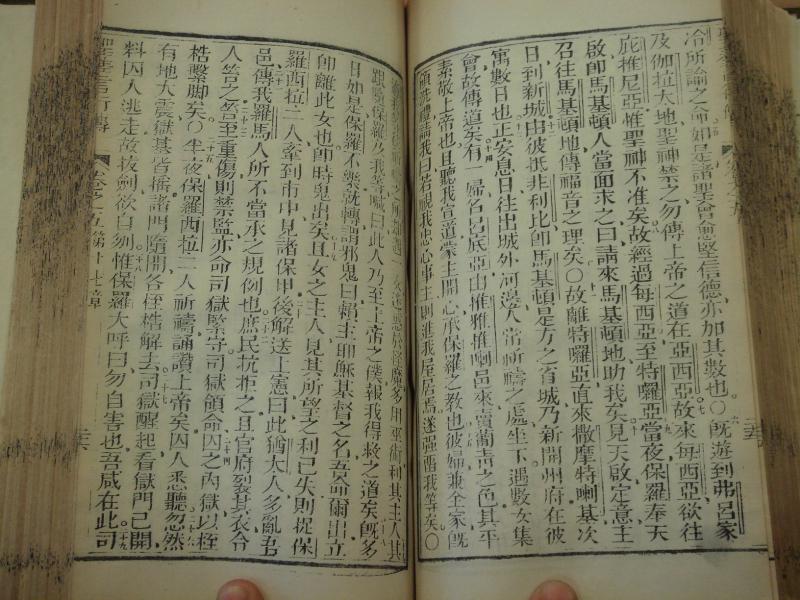 冷所論之命如是諸聖會愈堅信德亦加其數也〇六既遊到弗呂家
及伽拉大地聖神禁之勿傳上帝之道在亞西亞七故來每西亞欲往
庇推尼亞惟聖神不准矣八故經過每西亞至特囉亞九當夜保羅奉天
啟卽馬基頓人當面求之曰請來馬基頓地助我矣十見天啟定意主
召往馬基頓地傳福音之理矣〇十一故離特囉亞直來撒摩特喇基次
日到新城十二由彼抵非利比卽馬基頓是方之省城乃新開州府在彼
寓數日也十三正安息日往出城外河邊人常祈禱之處坐下遇數女集
會故傳道矣十四有一婦名呂底亞由推雅推喇邑來賣蘭青之色其平
素敬上帝也且聽我宣道蒙主開心承保羅之教也彼婦兼全家既
領洗禮請我曰若視我忠心事主則進我屋居焉遂强留我等矣〇
女
跟隨保羅乃我等喊曰此人乃至上帝之僕報我得救之道矣既多
日如是保羅不樂就轉謂邪鬼曰賴主耶穌基督之名吾命爾出立
卽離此女也卽時鬼出矣十九且女之主人見其所望之利已失則捉保
羅西拉二人牽到市中見諸保甲二十後解送上憲曰此猶太人多亂吾
邑二十一傳我羅馬人所不當承之規例也二十二庶民抗拒之且官府裂其衣令
人笞之二十三笞至重傷則禁監亦命司獄緊守二十四司獄領命囚之內獄以桎
梏繫脚矣〇二十五半夜保羅西拉二人祈禱誦讚上帝矣囚人悉聽二十六忽然
有地大震獄基皆搖諸門隨開各桎梏解去二十七司獄醒起看獄門已開
料囚人逃走故拔劍欲自刎二十八惟保羅大呼曰勿自害也吾咸在此二十九司
卷之五第十七章